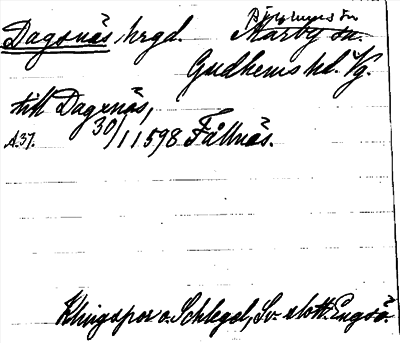 Bjärklunda sn
Dagsnäs hrgd. Marby sn.
Gudhems hd. Vg.
till Dagxnäs,
A.37. 30/11 1598 Fållnäs.
Klingspor o. Schlegel, Sv. slott. Engsö.